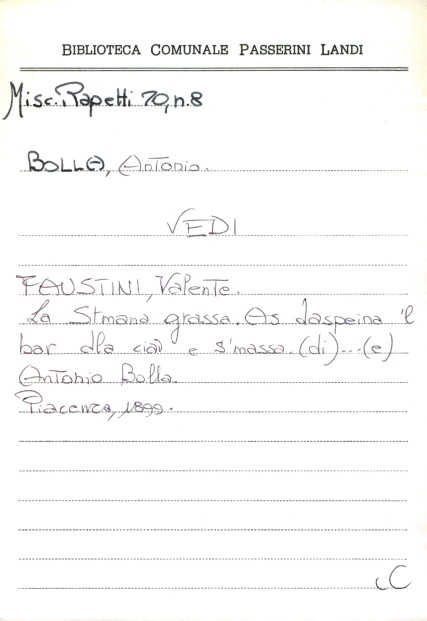 BIBLIOTECA COMUNALE PASSERINI LANDI
Misc. Rapetti 70, n. 8
BOLLA, Antonio.
VEDI
FAUSTINI, Valente.
La Stmana grassa. As daspeina 'l
bar dla ciav e s'massa. (di)...(e)
Antonio Bolla.
Piacenza, 1899.
C